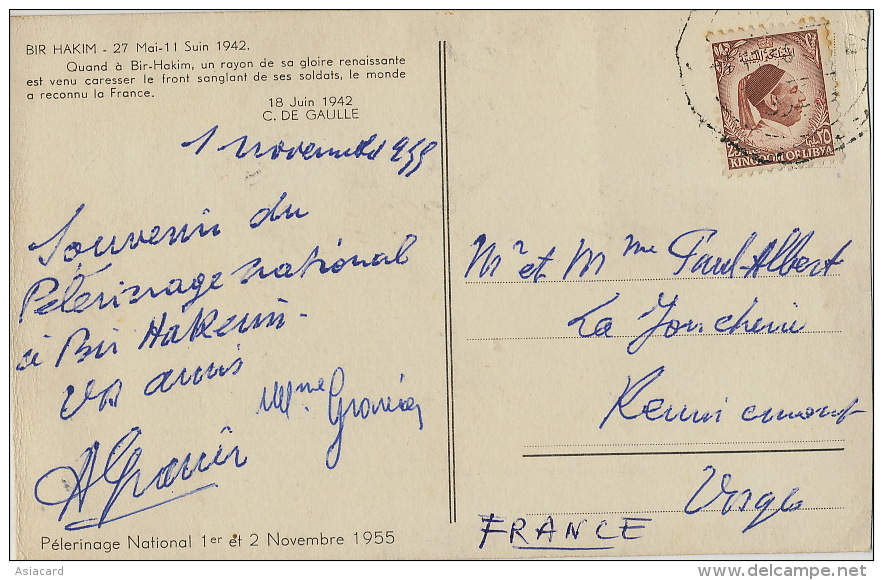 BIR HAKIM - 27 Mai-11 Suin 1942.
Quand à Bir-Hakim, un rayon de sa gloire renaissante
est venu caresser le front sanglant de ses soldats, le monde
a reconnu la France.
18 Juin 1942
C. DE GAULLE
1 novembre 955
Souvenir du
Pélerinage national
à Bir Hakeim -
vos amis
Mme
Pélerinage National 1er et 2 Novembre 1955
KINGDOM OF LIBYA
Mr et Mme Paul Albert
La
Remiremont
Vosges
FRANCE
Asiacard
www.delcampe.net